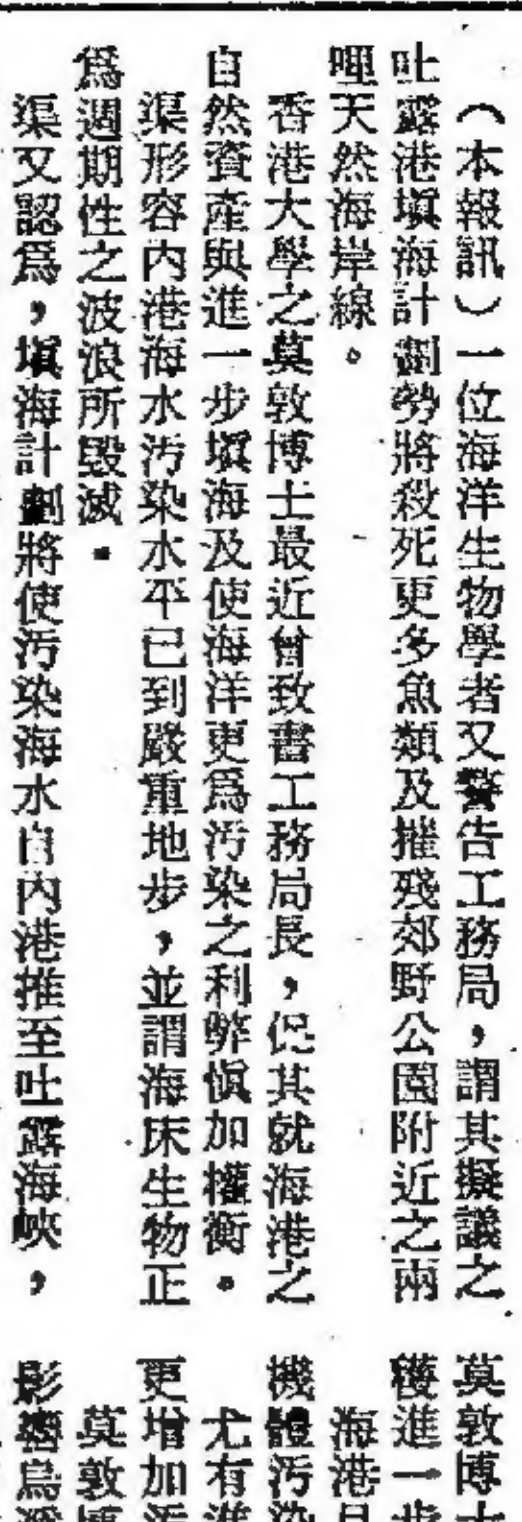 （本報訊）一位海洋生物學者又警告工務局，謂其擬議之
吐露港填海計劃勢將殺死更多魚類及摧殘郊野公園附近之兩
哩天然海岸線。
香港大學之莫敦博士最近曾致書工務局長，促其就海港之
自然資產與進一步填海及使海洋更爲汚染之利弊愼加權衡。
渠形容內港海水汚染水平已到嚴重地步，並謂海床生物正
爲週期性之波浪所毀滅。
渠又認爲，填海計劃將使汚染海水自內港推至吐露海峽，
莫敦博
獲進一步
海港
機體汚染
尤有進
更增加
莫敦博
影響